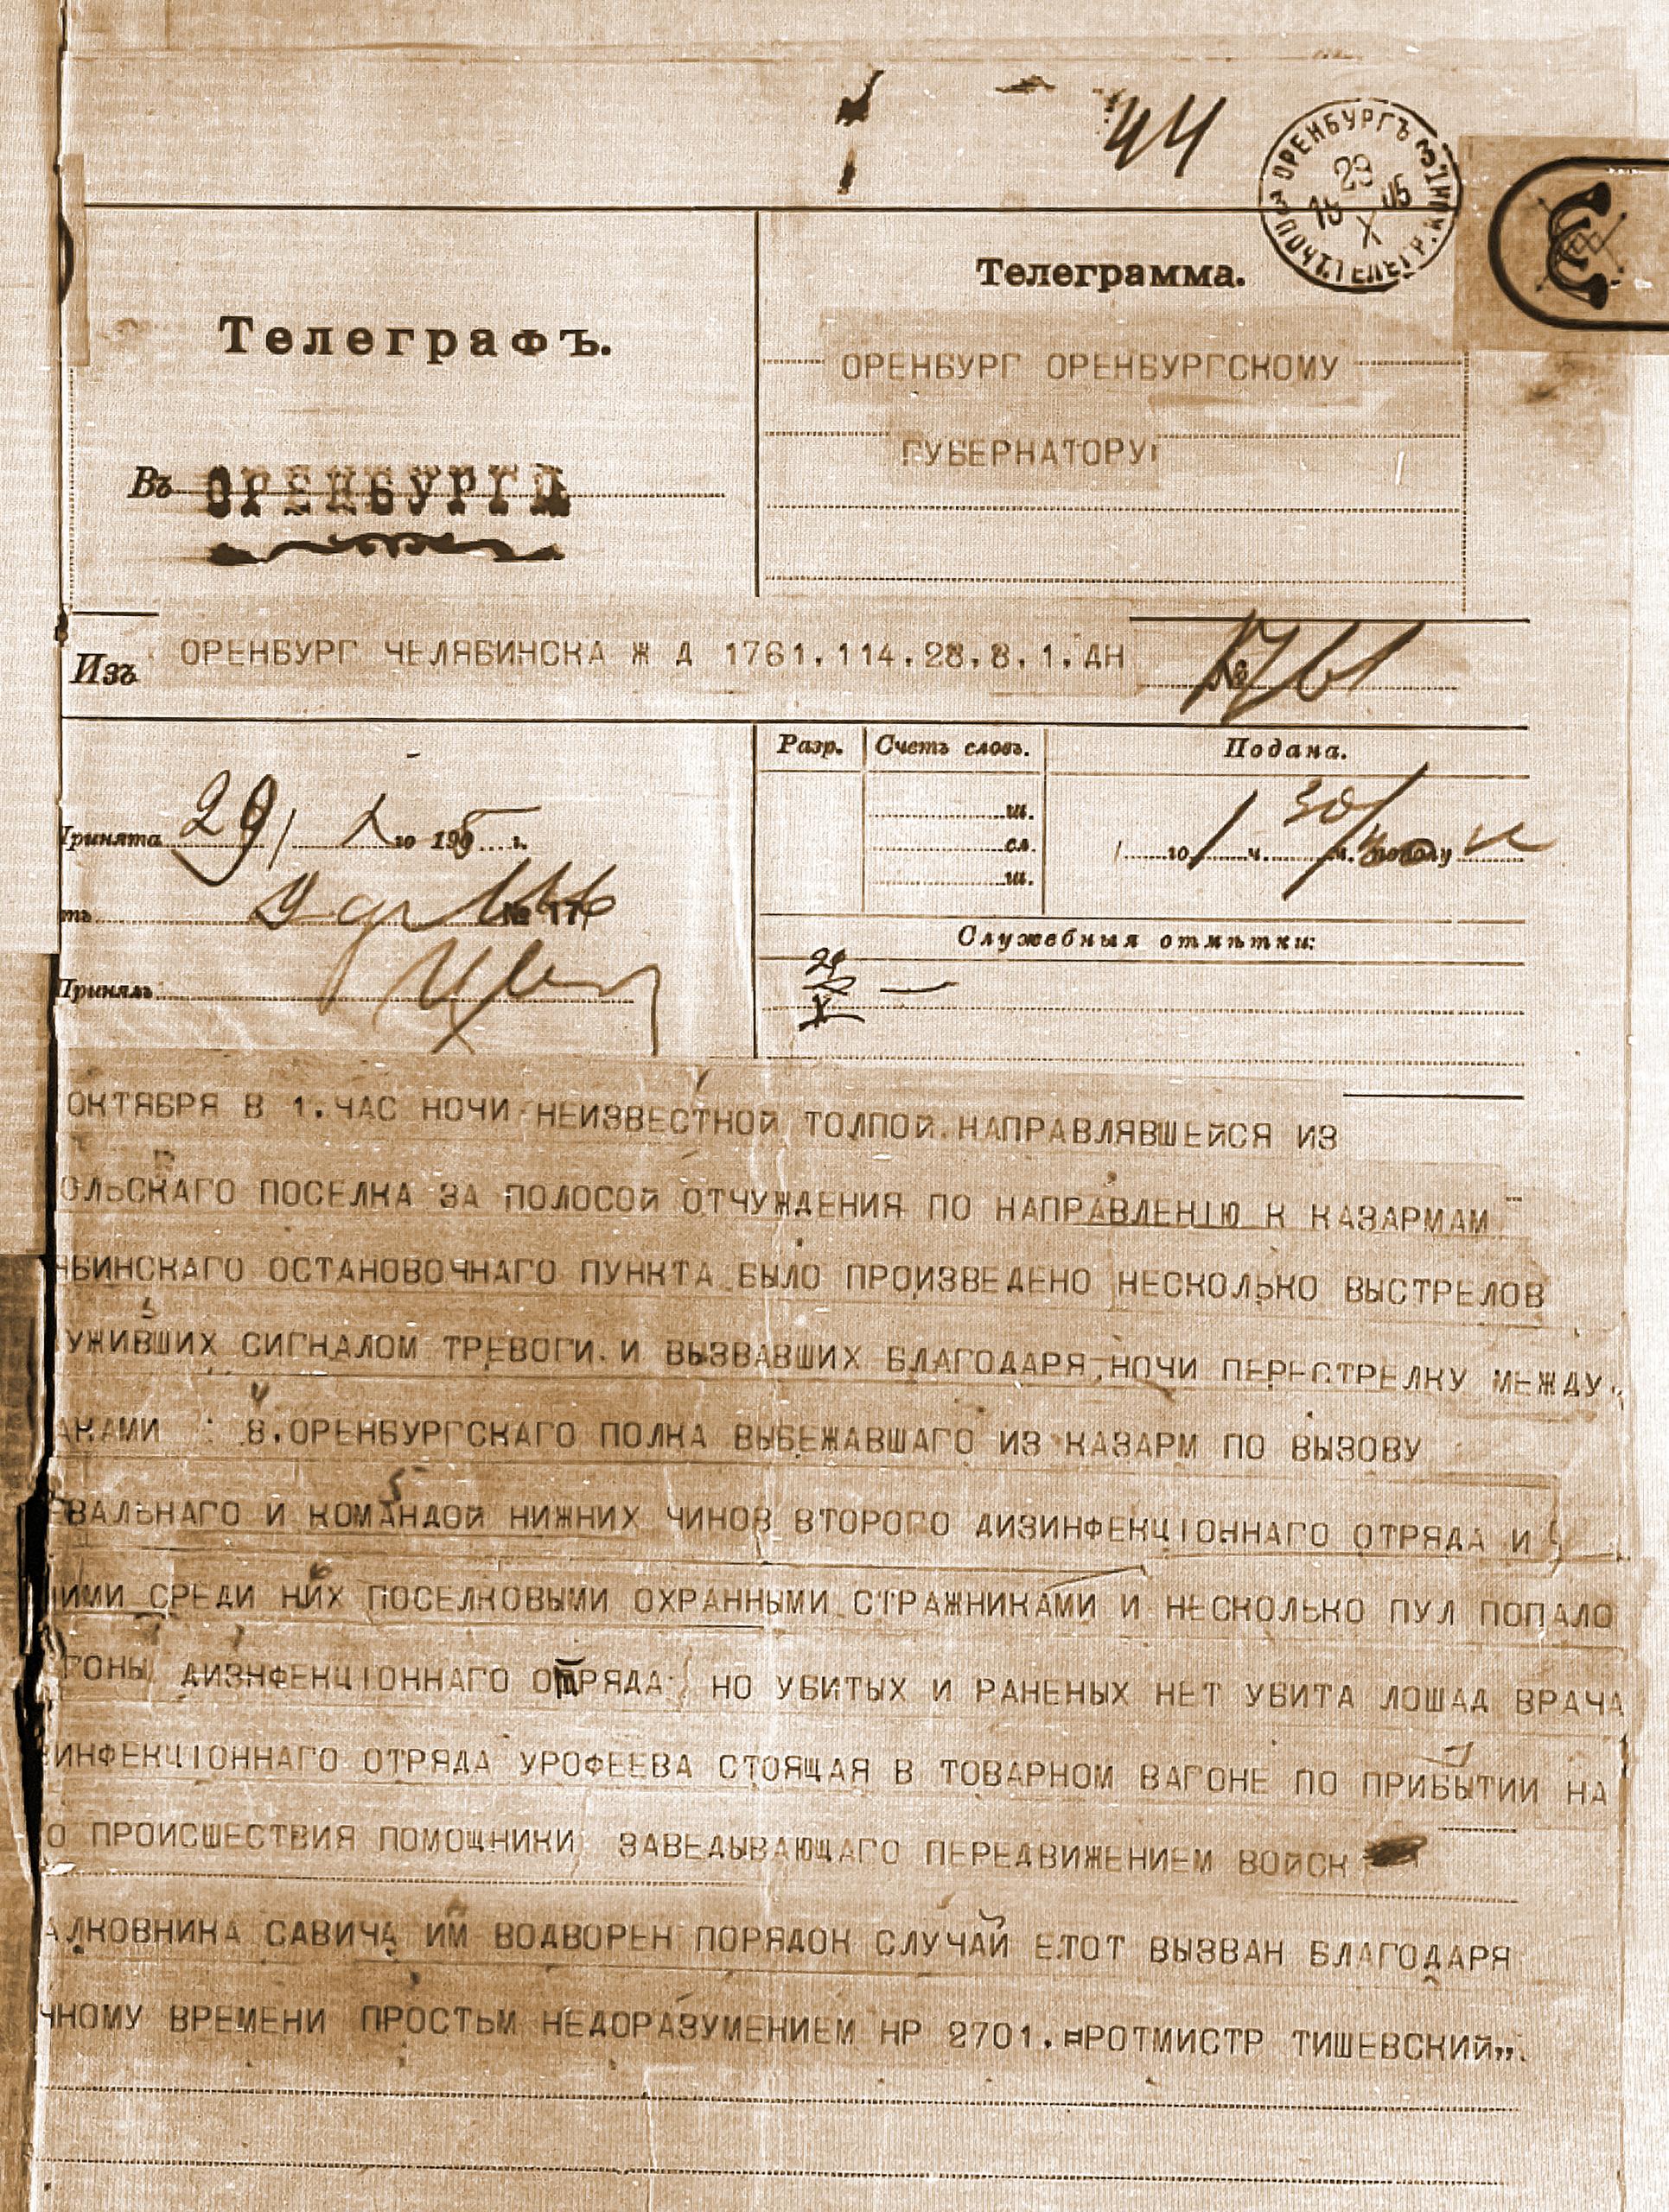 44
ОРЕНБУРГЪ
29
X
Телеграмма.
Телеграфъ.
ОРЕНБУРГ ОРЕНБУРГСКОМУ
ГУБЕРНАТОРУ
Въ ОРЕНБУРГЪ
Изъ ОРЕНБУРГ ЧЕЛЯБИНСКА Ж Д 1761.114.28.8.1.ДН № 1761
Разр. Счетъ словъ. Подана.
Принята 29/ X го 1905 г.
ш.
сл.
ш.
го 1 ч. 30 м. полу
тъ
№ 17
Служебныя отмѣтки:
29
X
Принялъ
ОКТЯБРЯ В 1.ЧАС НОЧИ НЕИЗВЕСТНОЙ ТОЛПОЙ.НАПРАВЛЯВШЕЙСЯ ИЗ
ОЛЬСКАГО ПОСЕЛКА ЗА ПОЛОСОЙ ОТЧУЖДЕНИЯ ПО НАПРАВЛЕНІЮ К КАЗАРМАМ
ЯБИНСКАГО ОСТАНОВОЧНАГО ПУНКТА БЫЛО ПРОИЗВЕДЕНО НЕСКОЛЬКО ВЫСТРЕЛОВ
УЖИВШИХ СИГНАЛОМ ТРЕВОГИ.И ВЫЗВАВШИХ БЛАГОДАРЯ НОЧИ ПЕРЕСТРЕЛКУ МЕЖДУ
АКАМИ 8.ОРЕНБУРГСКАГО ПОЛКА ВЫБЕЖАВШАГО ИЗ КАЗАРМ ПО ВЫЗОВУ
ЕВАЛЬНАГО И КОМАНДОЙ НИЖНИХ ЧИНОВ ВТОРОГО ДИЗИНФЕКЦІОННАГО ОТРЯДА И
ИМИ СРЕДИ НИХ ПОСЕЛКОВЫМИ ОХРАННЫМИ СТРАЖНИКАМИ И НЕСКОЛЬКО ПУЛ ПОПАЛО
ГОНЫ ДИЗНФЕКЦІОННАГО ОТРЯДА НО УБИТЫХ И РАНЕНЫХ НЕТ УБИТА ЛОШАД ВРАЧА
ИНФЕКЦІОННАГО ОТРЯДА УРОФЕЕВА СТОЯЩАЯ В ТОВАРНОМ ВАГОНЕ ПО ПРИБЫТИИ НА
О ПРОИСШЕСТВИЯ ПОМОЩНИКИ ЗАВЕДЫВАЮЩАГО ПЕРЕДВИЖЕНИЕМ ВОЙСК
АЛКОВНИКА САВИЧА ИМ ВОДВОРЕН ПОРЯДОК СЛУЧАЙ ЕТОТ ВЫЗВАН БЛАГОДАРЯ
ЧНОМУ ВРЕМЕНИ ПРОСТЬМ НЕДОРАЗУМЕНИЕМ НР 2701.=РОТМИСТР ТИШЕВСКИЙ„.